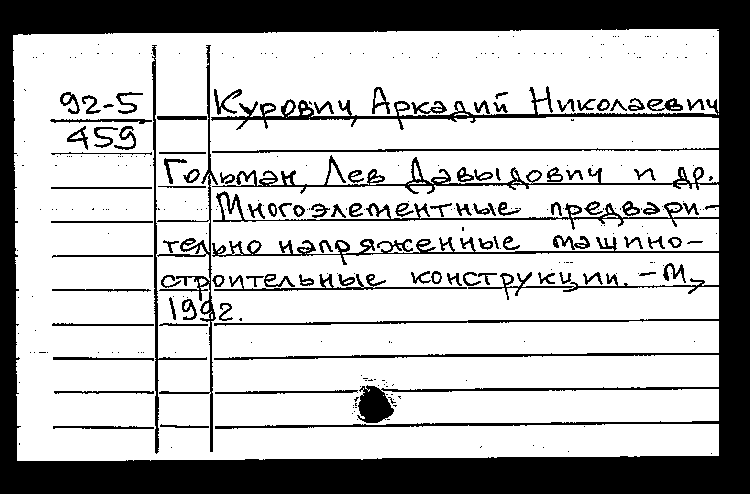 92-5
459
Курович, Аркадий Николаевич
Гольман, Лев Давыдович и др.
Многоэлементные предвари-
тельно напряженные машино-
строительные конструкции. - М.,
1992.